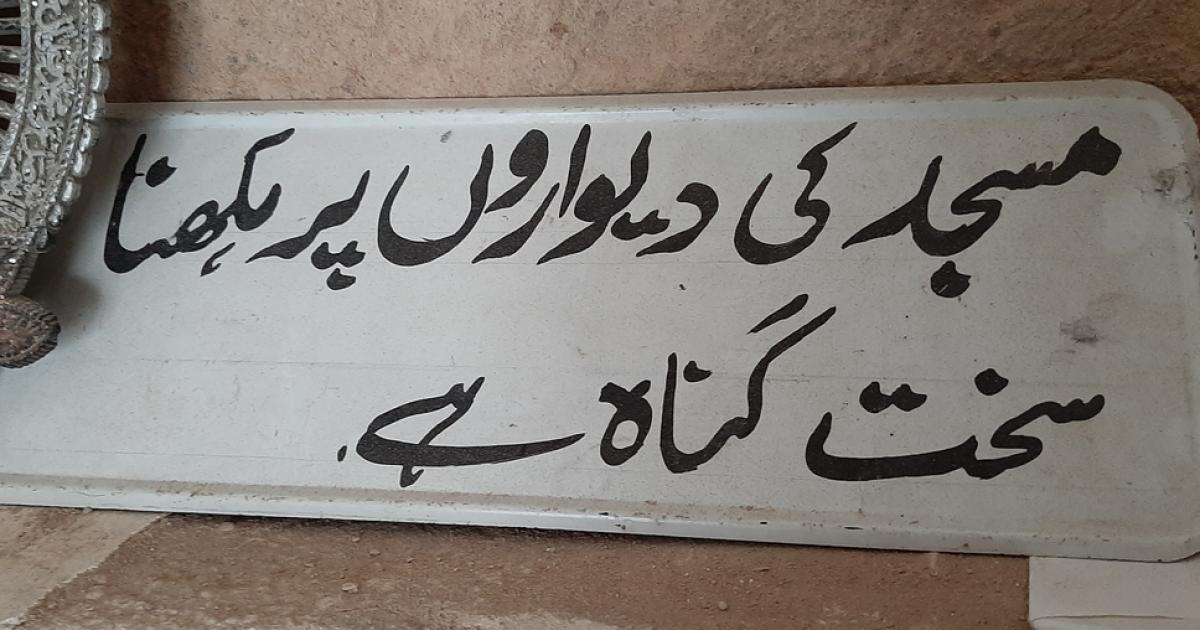 مسجد کی دیواروں پر لکھنا
سخت گناہ ہے۔